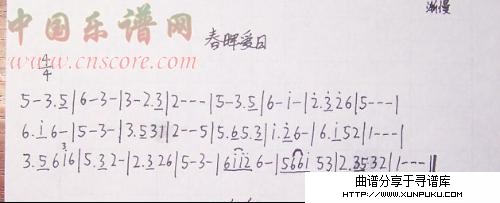 渐慢
中国乐谱网
春晖爱日
4/4
www.cnscore.com
5-3.5|6-3-|3-2.3|2---|5-3.5|6-i-|2̇.3̇2̇6|5---|
6.i̇6-|5-3-|3.531|2--5|5.653|i̇.2̇6-|6.i̇52|1---|
3.56i̇6|5.32-|2.326|5-3-|6i̇i̇2̇6-|566i̇53|2.3532|1---‖
曲谱分享于寻谱库
HTTP://WWW.XUNPUKU.COM